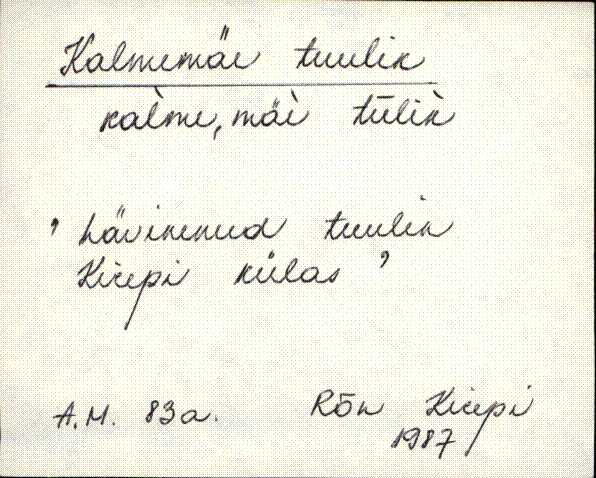 Kalmemäe tuulik
kal̀me, mäè tūlik̀
' hävinenud tuulik
Kiiepi külas '
A.M. 83a. Rõn Kiiepi
1987